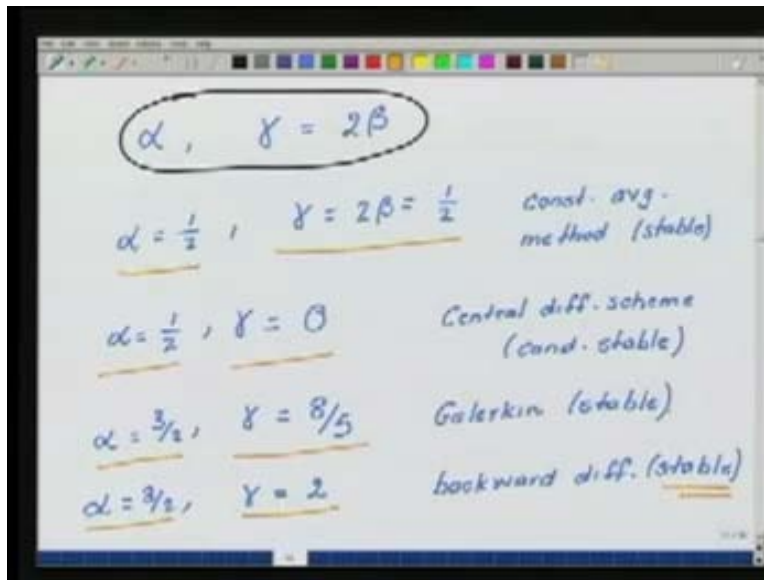 α, γ = 2β
α = 1/2, γ = 2β = 1/2 const. avg.
method (stable)
α = 1/2, γ = 0 Central diff. scheme
(cond. stable)
α = 3/2, γ = 8/5 Galerkin (stable)
α = 3/2, γ = 2 backward diff. (stable)